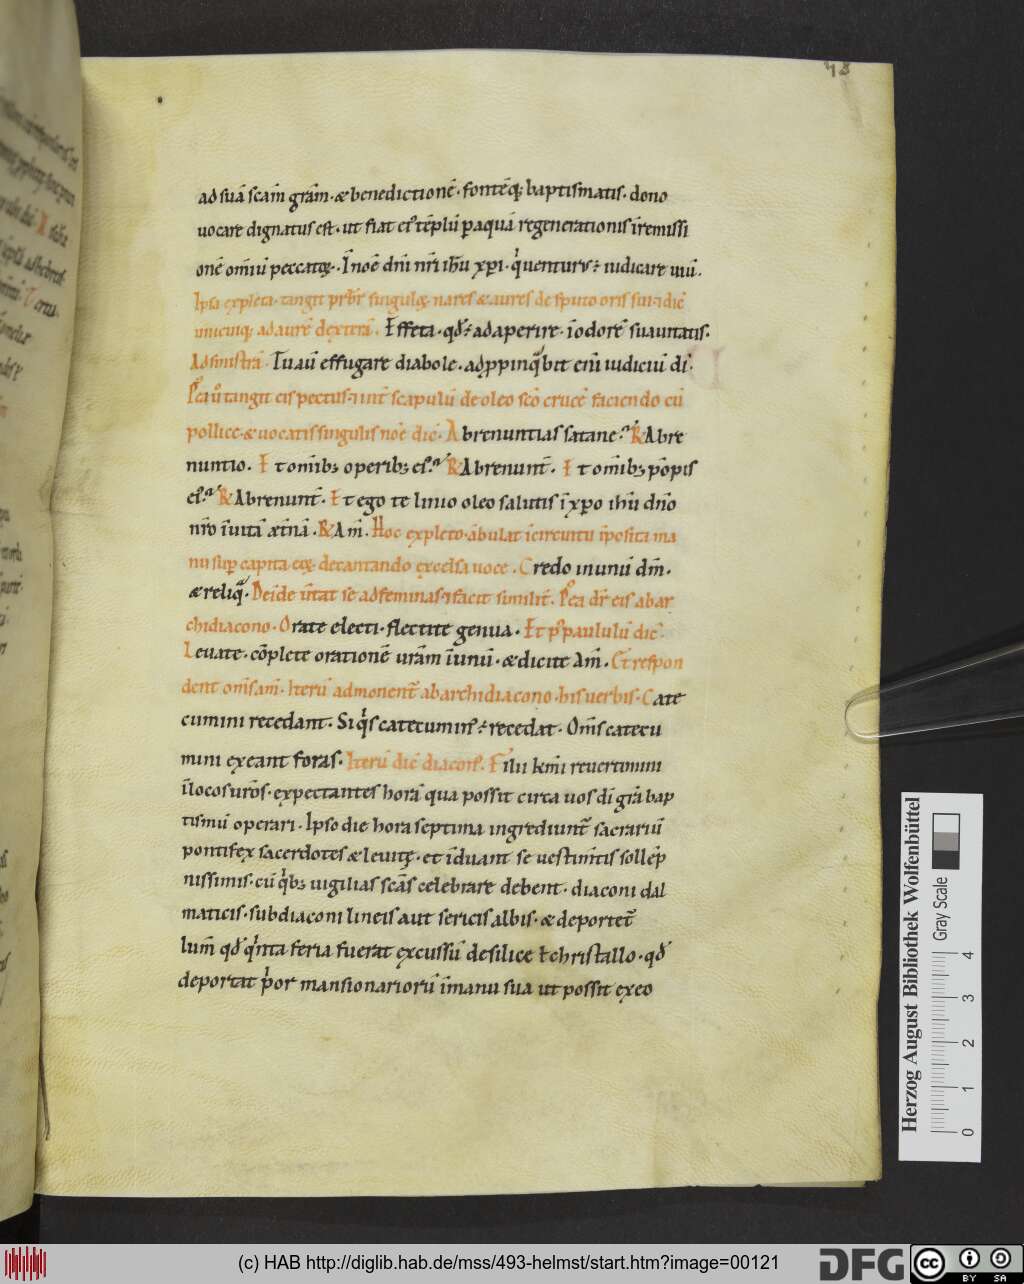 43
ad suā scam̄ grām̄ · & benedictionē · fontēq; baptismatis · dono
uocare dignatus est · ut fiat ei' tēplū p aquā regenerationis ī remissi
onē om̄iū peccatoꝝ · In noē dn̄i nr̄i ihū xpi · q' uenturus ē iudicare uiū ·
Ipsa expleta · tangit prb̄r singuloꝝ nares & aures de sputo oris sui · ⁊ dic̄
unicuiq; ad aurē dexterā · Effeta · qd' ē adaperire · ī odorē suauitatis ·
Ad sinistrā · Tu aū effugare diabole · adppinq̄bit enī iudiciū dī ·
Pea ū tangit eis pectus · ⁊ int̄ scapulū de oleo sc̄o crucē faciendo cū
pollice · & uocatis singulis noē dic̄ · Abrenuntias satane · ℟ Abre
nuntio · Et om̄ib; operib; ei' · ℟ Abrenunt̄ · Et om̄ib; pōpis
ei' · ℟ Abrenunt̄ · Et ego te linio oleo salutis ī xpo ihū dn̄o
nr̄o ī uitā æt̄nā · ℟ Am̄ · Hoc expleto · ābulat ī circuitu īposita ma
nu sup capita eoꝝ decantando excelsa uoce · Credo in unū dm̄ ·
& reliq̄ · Deīde ūtat se ad feminas · ⁊ facit similit̄ · Pea dr̄ eis ab ar
chidiacono · Orate electi · flectite genua · Et p' paululū dic̄ ·
Leuate · cōplete orationē urām ī unū · & dicite Am̄ · Et respon
dent om̄s am̄ · Iterū admonent̄ ab archidiacono · his uerbis · Cate
cumini recedant · Si q's catecumin' ē recedat · Om̄s catecu
mini exeant foras · Iterū dic̄ diacon' · Filii km̄i reuertimini
ī locos ur̄os · expectantes horā qua possit circa uos dī grā bap
tismū operari · Ipso die hora septima ingrediunt̄ sacrariū
pontifex sacerdotes & leuitę · et īduant se uestim̄tis sollēp
nissimis · cū q'b; uigilias sc̄as celebrare debent · diaconi dal
maticis · subdiaconi lineis aut sericis albis · & deportet̄
lum̄ qd' q'nta feria fuerat excussū de silice ł christallo · qd'
deportat p'or mansionarioru ī manu sua ut possit ex eo
Herzog August Bibliothek Wolfenbüttel
Gray Scale
0 1 2 3 4
(c) HAB http://diglib.hab.de/mss/493-helmst/start.htm?image=00121
DFG
cc BY SA